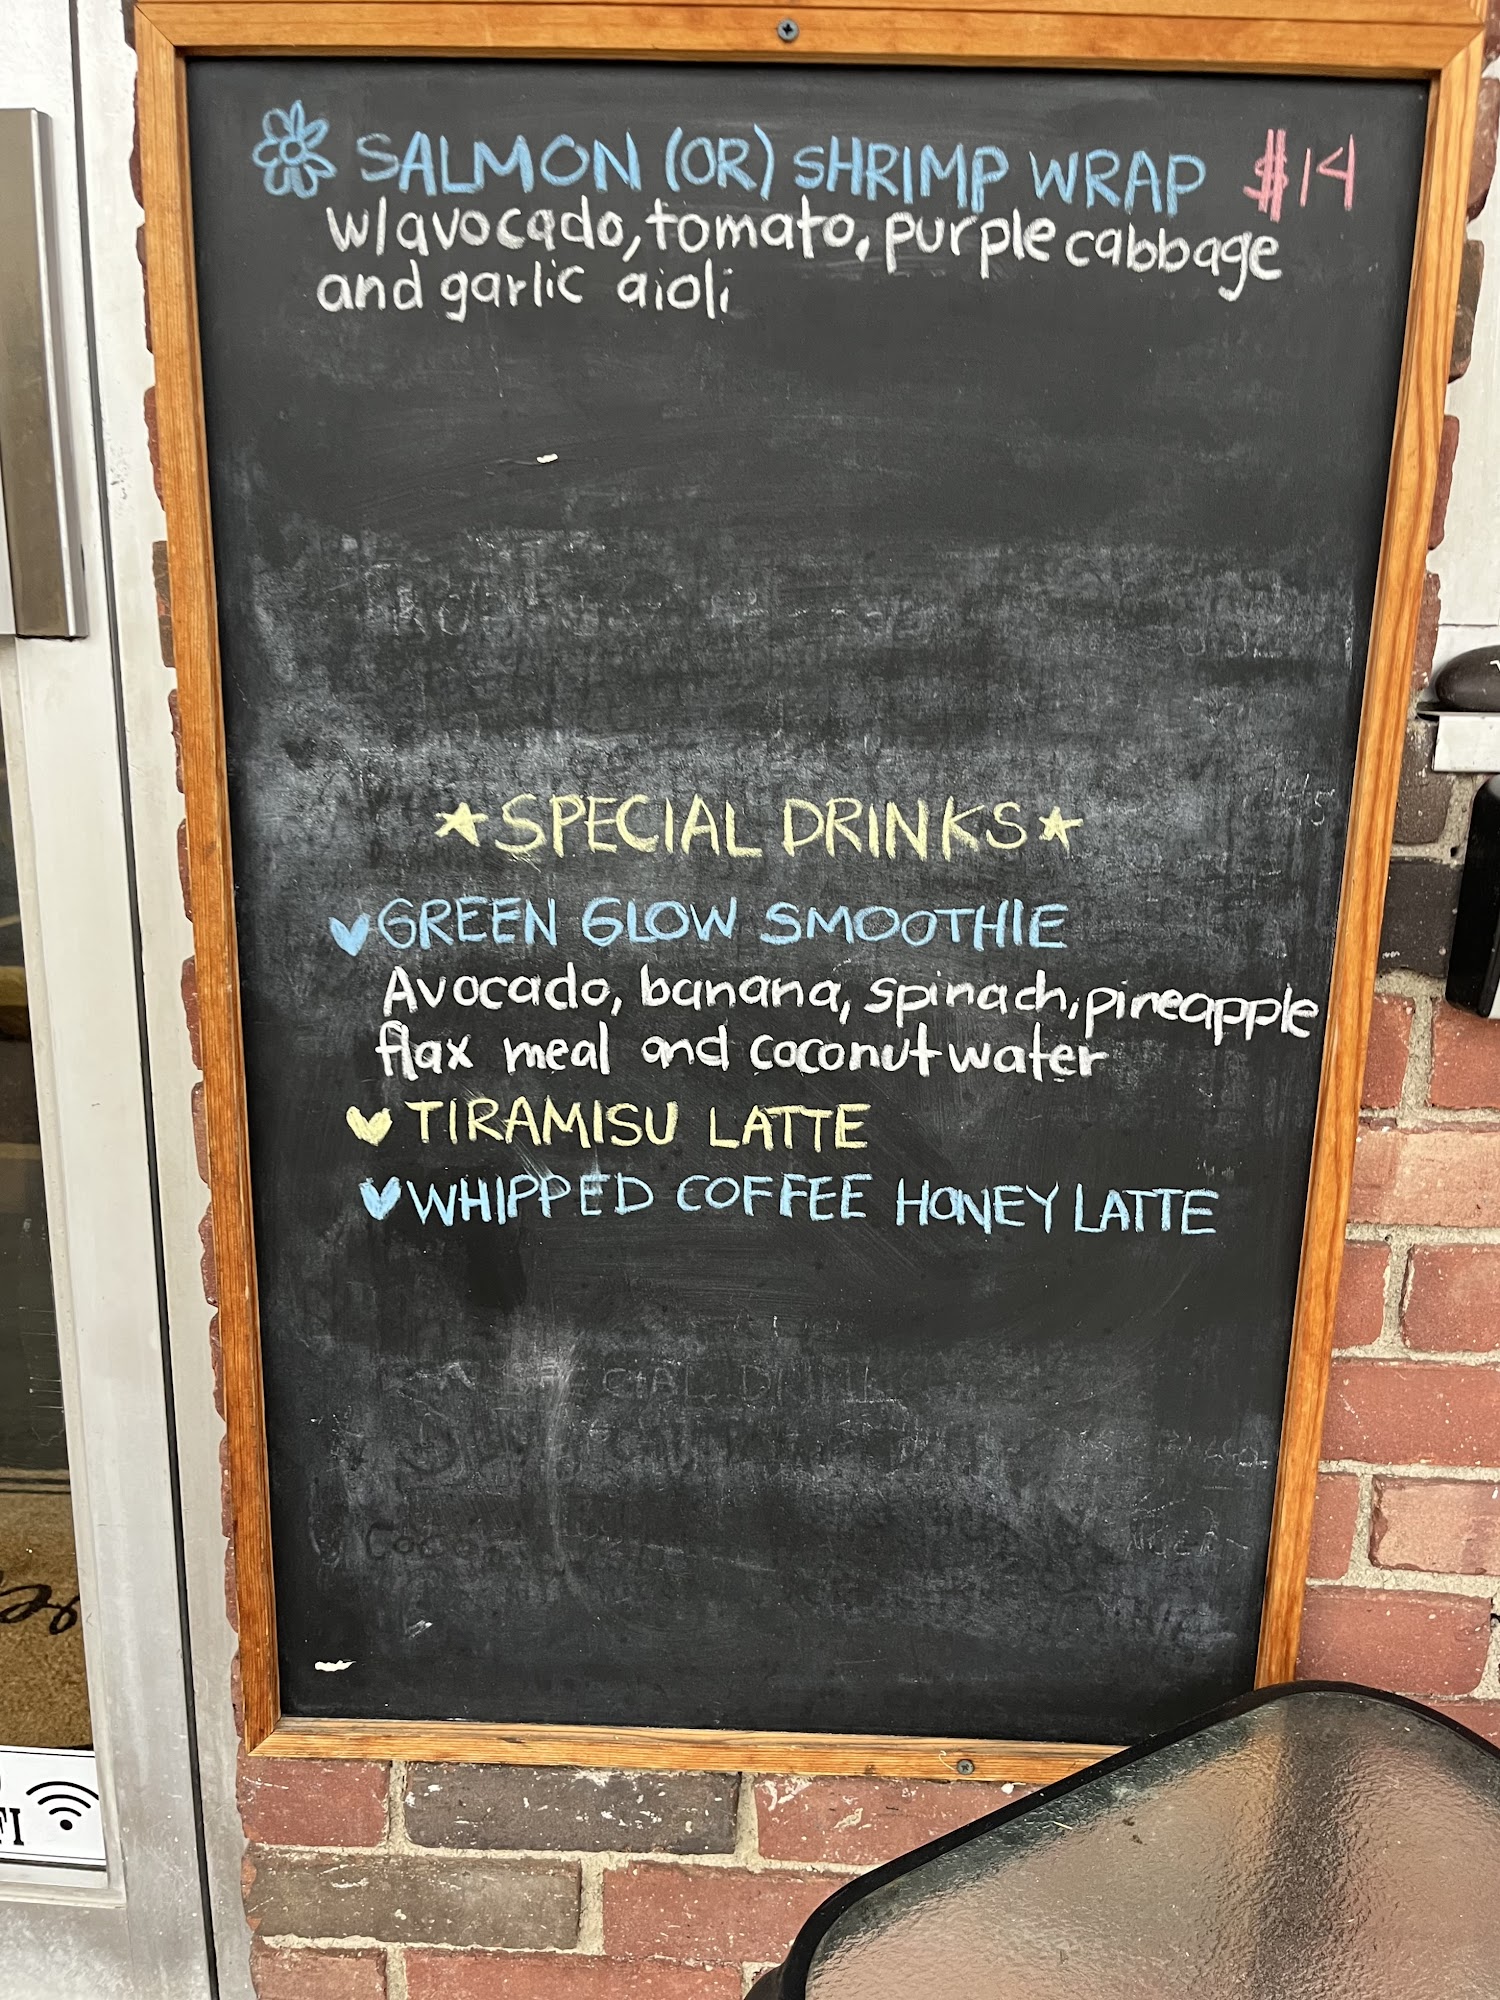 SALMON (OR) SHRIMP WRAP $14
w/avocado, tomato, purple cabbage
and garlic aioli
SPECIAL DRINKS
GREEN GLOW SMOOTHIE
Avocado, banana, spinach, pineapple
flax meal and coconut water
TIRAMISU LATTE
WHIPPED COFFEE HONEY LATTE
FI